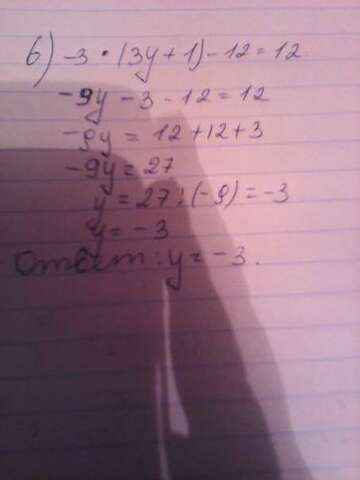 б) -3 • (3y + 1) - 12 = 12
-9y - 3 - 12 = 12
-9y = 12 + 12 + 3
-9y = 27
y = 27 : (-9) = -3
y = -3
Ответ: y = -3.